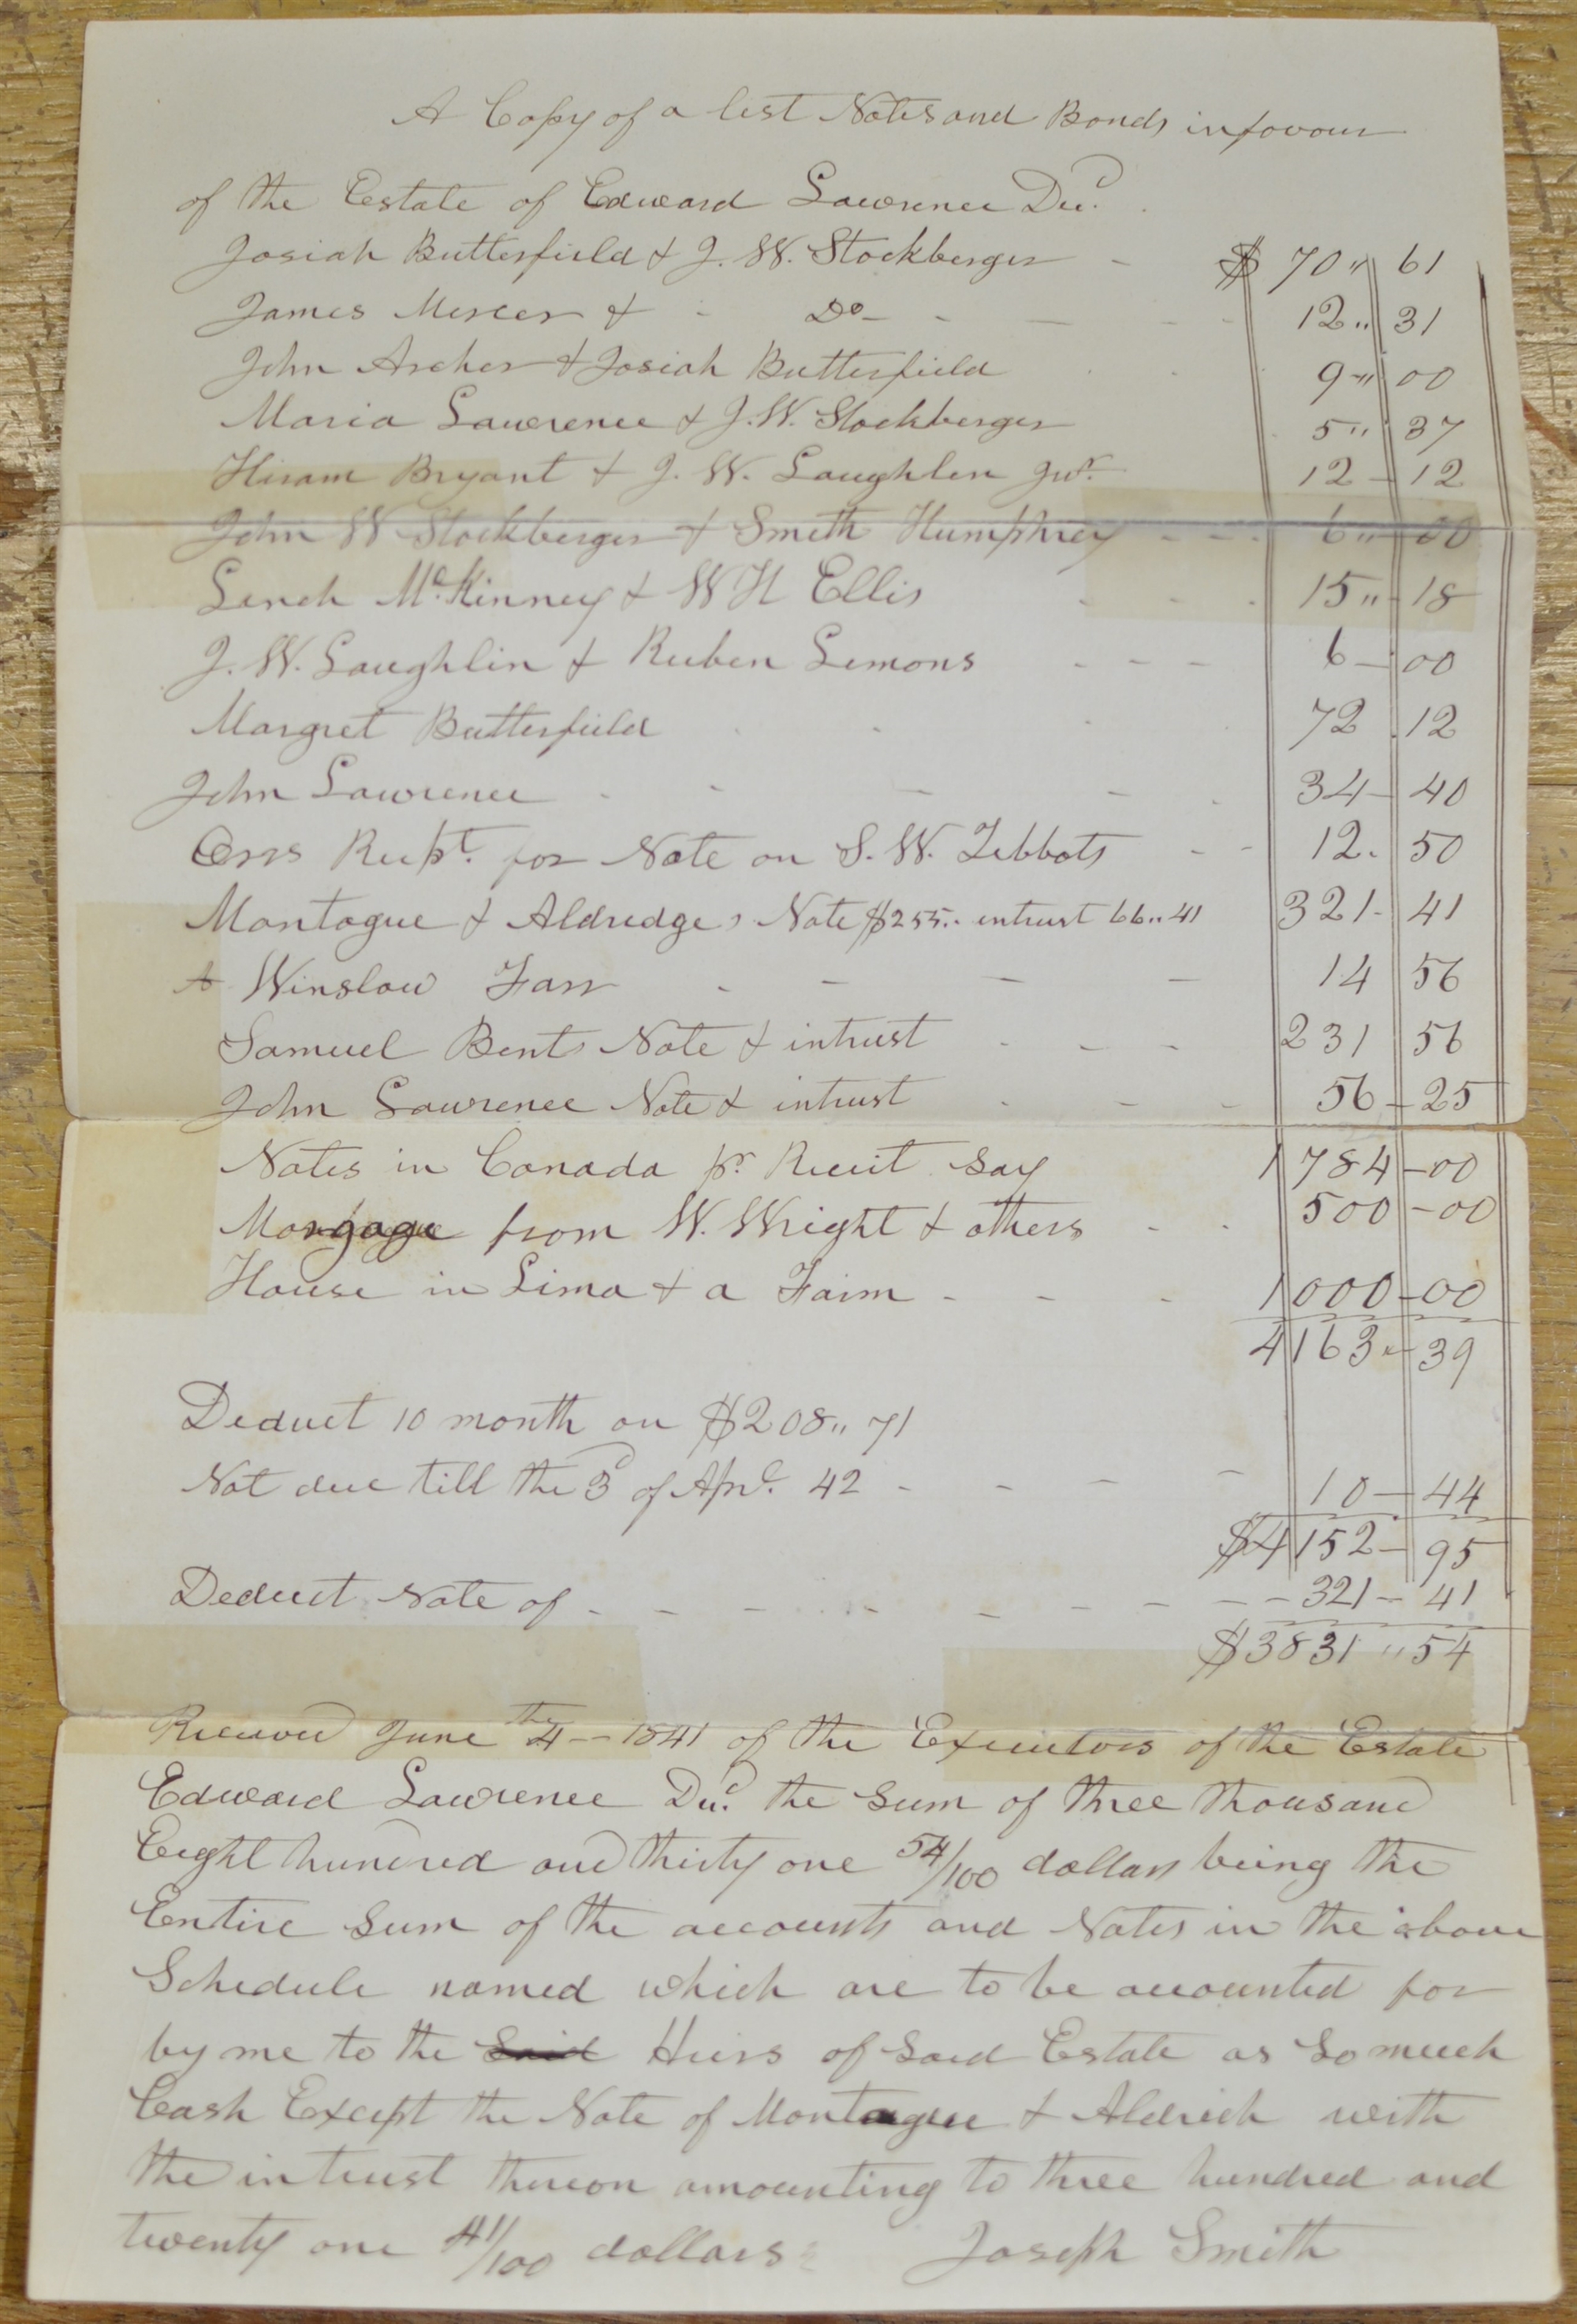 A Copy of a list Notes and Bonds in favour
of the Eestate of Edward Lawrence Decd.
Josiah Butterfield & J. W. Stockberger - $ 70 " 61
James Mercer & - Do - - - - - 12 " 31
John Archer & Josiah Butterfield 9 - " 00
Maria Lawrence & J. W. Stockberger 5 " 37
Hiram Bryant & J. W. Laughlin Junr. 12 - 12
John W Stockberger & Smith Humphrey - - - 6 " 00
Lench McKinney & W H Ellis - - - 15 " 18
J. W. Laughlin & Reuben Lemons - - - 6 - 00
Margret Butterfield 72 12
John Lawrence - - - - 34 - 40
Orrs Recpt. for Note on S. W. Tibbots - - 12. 50
Montague & Aldredges Note $255.. intrust 66..41 321 - 41
A Winslow Farr - - - - 14 56
Samuel Bents Note & intrust - - - 231 56
John Lawrence Note & intrust - - - 56 - 25
Notes in Canada pr. Receit say 1784 - 00
Morgage from W. Wright & others - - 500 - 00
House in Lima & a Farm - - - 1000 - 00
4163 - 39
Deduct 10 month on $208 " 71
Not due till the 3d of Aprl. 42 - - - - 10 - 44
$4152 - 95
Deduct Note of - - - - - - - - - 321 - 41
$3831 " 54
Received June the 4 - 1841 of the Executors of the Estate
Edward Lawrence Decd. the Sum of three thousand
Eight hundred and thirty one 54/100 dollars being the
Entire Sum of the accounts and Notes in the above
Schedule named which are to be accounted for
by me to the Said Heirs of Said Estate as So much
Cash Except the Note of Montague & Aldrich with
the intrust thereon amounting to three hundred and
twenty one 41/100 dollars Joseph Smith